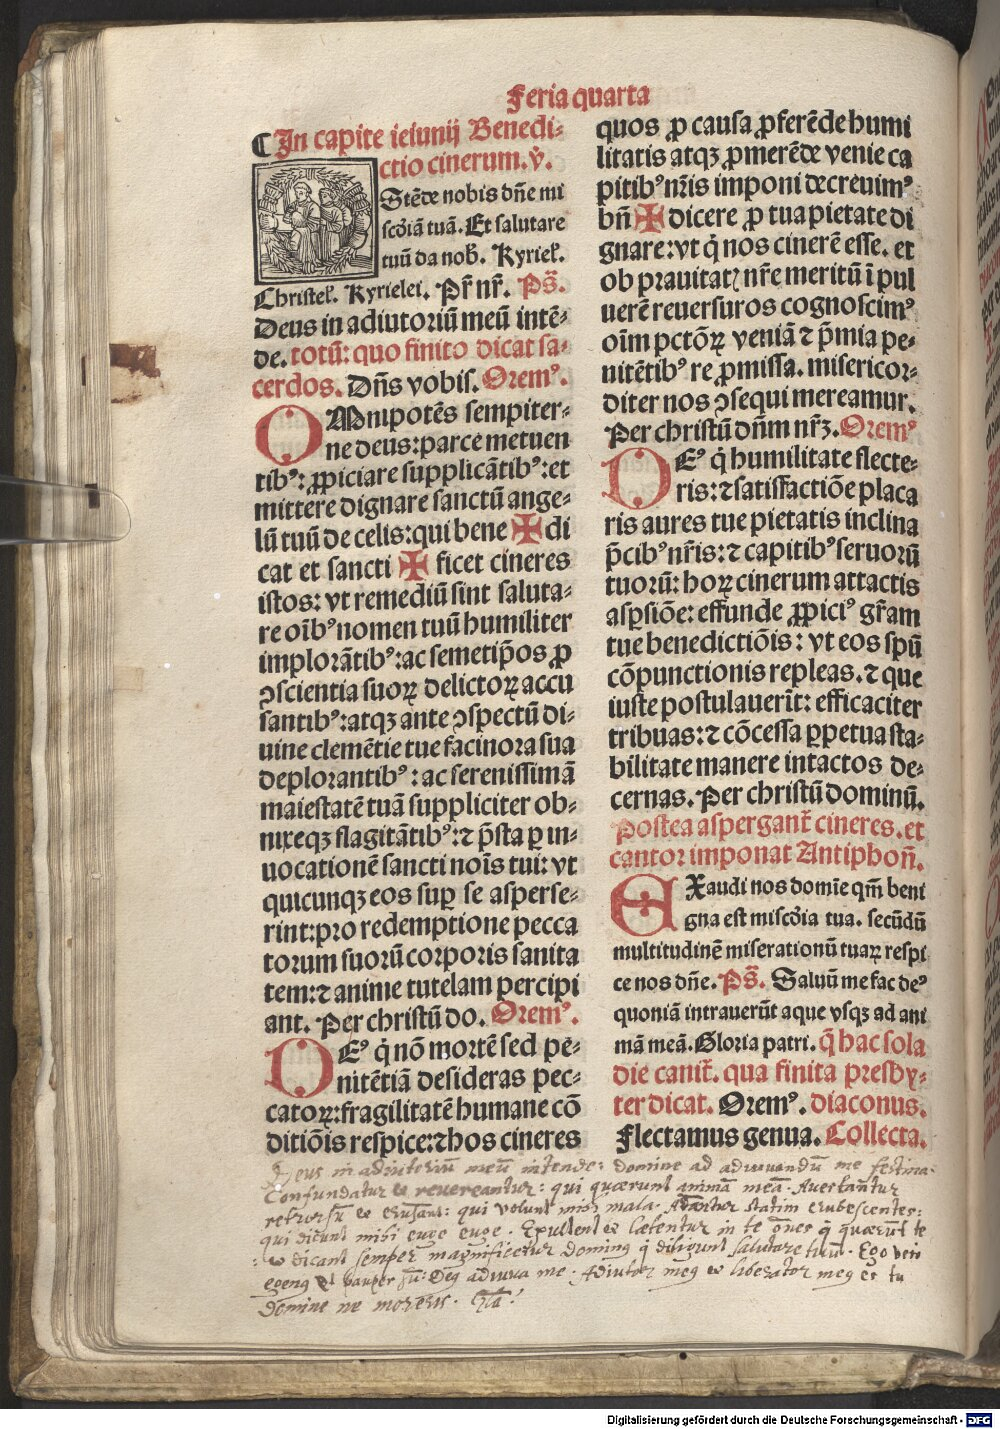 Feria quarta
¶ In capite ieiunij Benedi-
ctio cinerum. v̂.
Stēde nobis dn̄e mi
sc̄diā tuā. Et salutare
tuū da nob̄. Kyriel̄.
Christel̄. Kyrielei. Pr̄ nr̄. Ps̄.
Deus in adiutoriū meū intē-
de. totū: quo finito dicat sa-
cerdos. Dn̄s vobis. Oremꝰ.
OMnipotēs sempiter-
ne deus: parce metuen
tibꝰ: ꝓpiciare supplicātibꝰ: et
mittere dignare sanctū ange-
lū tuū de celis: qui bene ✠ di
cat et sancti ✠ ficet cineres
istos: vt remediū sint saluta-
re oībꝰ nomen tuū humiliter
implorātibꝰ: ac semetip̄os ꝓ
ꝯscientia suoꝝ delictoꝝ accu
santibꝰ: atqꝫ ante ꝯspectū di-
uine clemētie tue facinora sua
deplorantibꝰ: ac serenissimā
maiestatē tuā suppliciter ob-
nixeqꝫ flagitātibꝰ: ⁊ p̄sta ꝑ in-
uocationē sancti noīs tui: vt
quicunqꝫ eos suꝑ se asperse-
rint: pro redemptione pecca
torum suorū corporis sanita
tem: ⁊ anime tutelam percipi
ant. Per christū do. Oremꝰ.
DEꝰ q̇ nō mortē sed pe-
nitētiā desideras pec-
catoꝝ: fragilitatē humane cō
ditiōis respice: ⁊ hos cineres
quos ꝓ causa ꝓferēde humi
litatis atqꝫ ꝓmerēde venie ca
pitibꝰ nr̄is imponi decreuimꝰ
bn̄ ✠ dicere ꝓ tua pietate di
gnare: vt q̇ nos cinerē esse. et
ob prauitatꝭ nr̄e meritū ī pul
uerē reuersuros cognoscimꝰ
oīm pctōꝝ veniā ⁊ p̄mia pe-
nitētibꝰ re ꝓmissa. misericor-
diter nos ꝯsequi mereamur.
Per christū dn̄m nr̄ꝫ. Oremꝰ
DEꝰ q̇ humilitate flecte-
ris: ⁊ satisfactiōe placa
ris aures tue pietatis inclina
p̄cibꝰ nr̄is: ⁊ capitibꝰ seruorū
tuorū: hoꝝ cinerum attactis
asꝑsiōe: effunde ꝓpiciꝰ gr̄am
tue benedictiōis: vt eos spū
cōpunctionis repleas. ⁊ que
iuste postulauerīt: efficaciter
tribuas: ⁊ cōcessa ꝑpetua sta-
bilitate manere intactos de-
cernas. Per christū dominū.
Postea aspergant̄ cineres. et
cantor imponat Antiphon̄.
EXaudi nos domīe qm̄ beni
gna est misc̄dia tua. secūdū
multitudinē miserationū tuaꝝ respi
ce nos dn̄e. Ps̄. Saluū me fac deꝰ
quoniā intrauerūt aque vsqꝫ ad ani
mā meā. Gloria patri. q̄ hac sola
die canit̄. qua finita presby-
ter dicat. Oremꝰ. diaconus.
Flectamus genua. Collecta.
Deus in adiutoriū meū intende: domine ad adiuvandū me festina.
Confundatur et revereantur: qui quærunt animam meā. Avertantur
retrorsū et erubescant: qui volunt mihi mala. Avertantur statim erubescentes:
qui dicunt mihi euge euge. Exultent et lætentur in te omnes q̇ quærūt te
et dicant semper magnificetur dominꝰ q̇ diligunt salutare tuū. Ego vero
egenꝰ et pauper sū: deꝰ adiuva me. Adiutor meꝰ et liberator meꝰ es tu
domine ne moreris. Gl̄a.
Digitalisierung gefördert durch die Deutsche Forschungsgemeinschaft - DFG